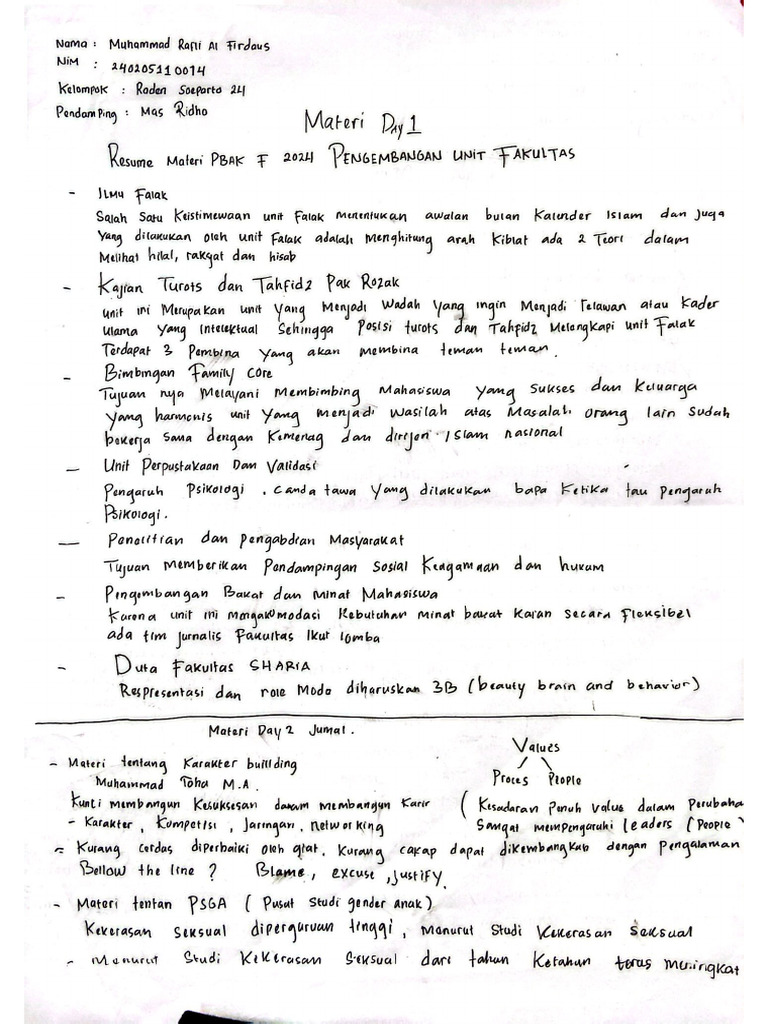 Nama : Muhammad Rafli Al Firdaus
NIM : 240205110014
Kelompok : Raden Soeparto 24
Pendamping : Mas Ridho
Materi Day 1
Resume Materi PBAK F 2024 PENGEMBANGAN UNIT FAKULTAS
- ILMU Falak
Salah Satu Keistimewaan unit Falak menentukan awalan bulan Kalender Islam dan juga
yang dilakukan oleh unit Falak adalah Menghitung arah Kiblat ada 2 Teori dalam
Melihat hilal, rakyat dan hisab
- Kajian Turots dan Tahfidz Pak Rozak
unit ini Merupakan unit yang Menjadi Wadah yang ingin Menjadi relawan atau Kader
ulama yang intelektual Sehingga Posisi turots dan Tahfidz Melengkapi unit Falak
Terdapat 3 Pembina yang akan membina teman teman.
- Bimbingan Family Core
Tujuan nya Melayani Membimbing Mahasiswa yang Sukses dan Keluarga
yang harmonis unit yang menjadi Wasilah atas Masalah orang lain sudah
bekerja Sama dengan Kemenag dan dirjen Islam nasional
- Unit Perpustakaan Dan Validasi
Pengaruh Psikologi . canda tawa yang dilakukan bapa Ketika tau pengaruh
Psikologi.
- Penelitian dan pengabdian Masyarakat
Tujuan Memberikan Pendampingan Sosial Keagamaan dan hukum
- Pengembangan Bakat dan minat Mahasiswa
Karena unit ini mengakomodasi Kebutuhan minat bakat Kalian secara Fleksibel
ada tim jurnalis Fakultas Ikut lomba
- Duta Fakultas SHARIA
Respresentasi dan role Mode diharuskan 3B (beauty brain and behavior)
Materi Day 2 Jumat.
- Materi tentang Karakter buillding
Muhammad Toha M.A.
Kunci membangun Kesuksesan dalam membangun Karir
- Karakter, Kompetisi, Jaringan, networking
Values
Proces People
( Kesadaran Penuh value dalam Perubaha
Sangat mempengaruhi leaders (People
- Kurang cerdas diperbaiki oleh giat. Kurang cakap dapat dikembangkab dengan Pengalaman
Bellow the line ? Blame, excuse, justify.
- Materi tentan PSGA ( Pusat Studi gender anak)
Kekerasan seksual diperguruan tinggi, Menurut Studi Kekerasan seksual
- Menurut Studi Kekerasan Seksual dari tahun Ketahun terus meningkat